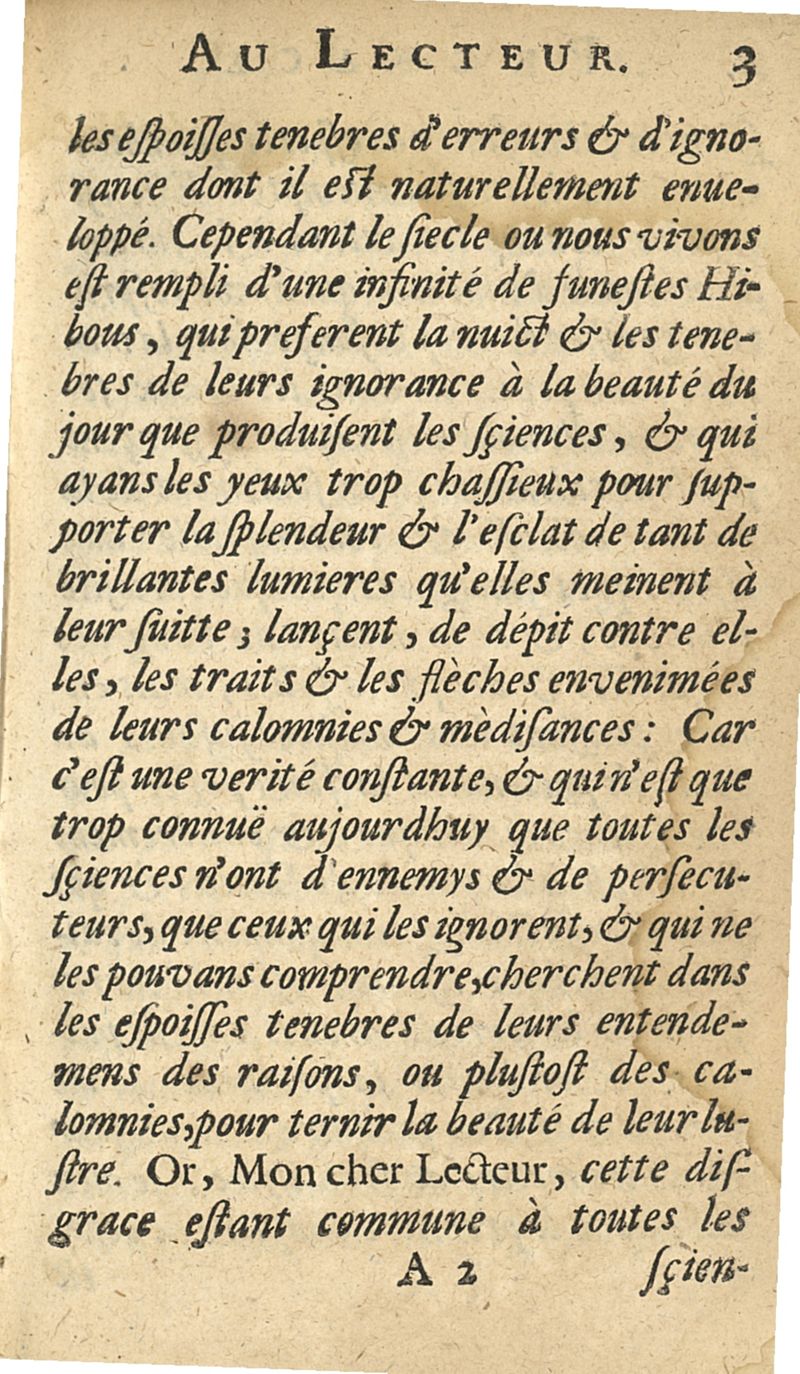 AU LECTEUR. 3
les eſpoiſſes tenebres d'erreurs & d'igno-
rance dont il eſt naturellement enue-
loppé. Cependant le ſiecle ou nous vivons
eſt rempli d'une infinité de funeſtes Hi-
bous, qui preferent la nuict & les tene-
bres de leurs ignorance à la beauté du
jour que produiſent les ſçiences, & qui
ayans les yeux trop chaſſieux pour ſup-
porter la ſplendeur & l'eſclat de tant de
brillantes lumieres qu'elles meinent à
leur ſuitte; lançent, de dépit contre el-
les, les traits & les flèches envenimées
de leurs calomnies & mèdiſances: Car
c'eſt une verité conſtante, & qui n'eſt que
trop connuë aujourdhuy que toutes les
ſçiences n'ont d'ennemys & de perſecu-
teurs, que ceux qui les ignorent, & qui ne
les pouvans comprendre, cherchent dans
les eſpoiſſes tenebres de leurs entende-
mens des raiſons, ou pluſtoſt des ca-
lomnies, pour ternir la beauté de leur lu-
ſtre. Or, Mon cher Lecteur, cette diſ-
grace eſtant commune à toutes les
A 2 ſçien-